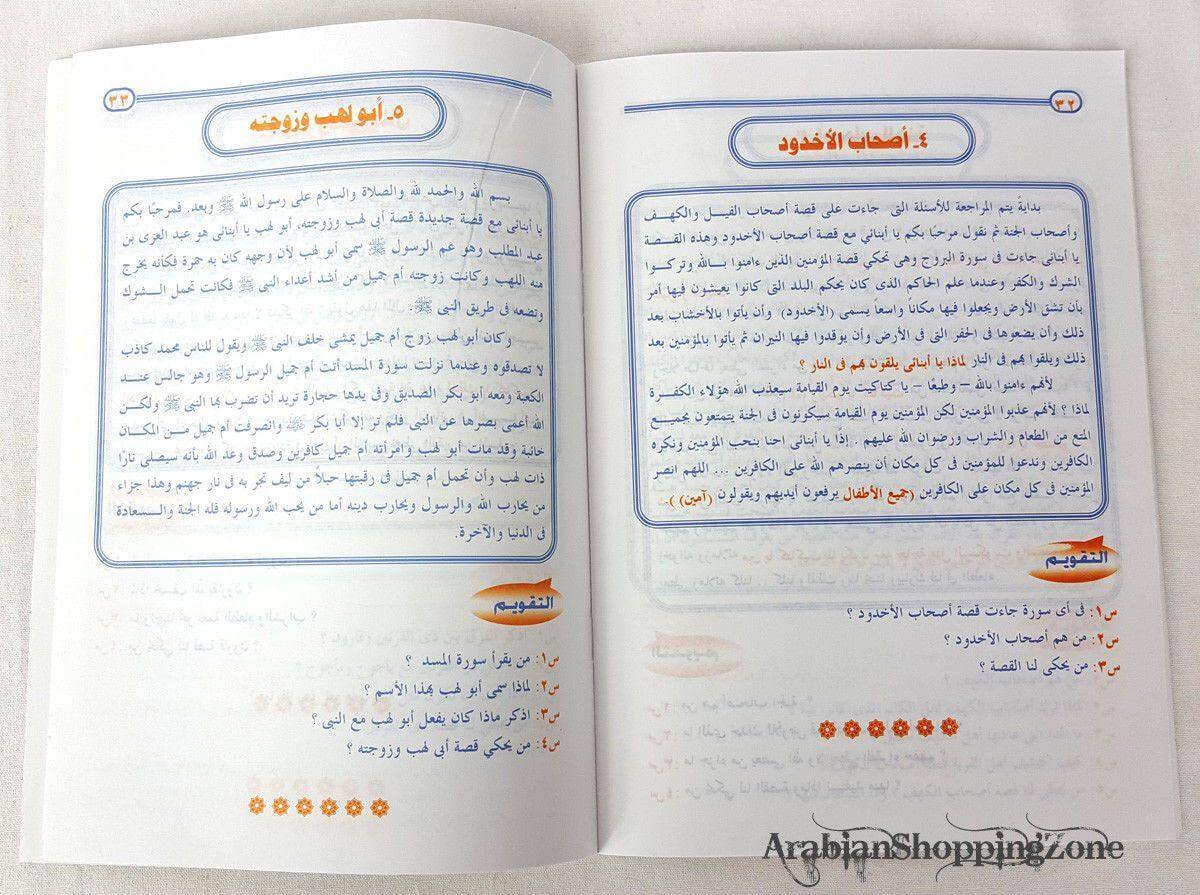 ٣٢
٤ـ أصحاب الأخدود
بدايةً يتم المراجعة للأسئلة التى جاءت على قصة أصحاب الفيـل والكهـف
وأصحاب الجنة ثم نقول مرحبًا بكم يا أبنائي مع قصة أصحاب الأخدود وهذه القـصة
يا أبنائى جاءت فى سورة البروج وهى تحكي قصة المؤمنين الذين ءامنوا بـالله وتركـوا
الشرك والكفر وعندما علم الحاكم الذى كان يحكم البلد التى كانوا يعيشون فيها أمر
بأن تشق الأرض ويجعلوا فيها مكانًا واسعًا يسمى (الأخدود) وأن يأتوا بالأخشاب بعد
ذلك وأن يضعوها فى الحفر التى فى الأرض وأن يوقدوا فيها النيران ثم يأتوا بالمؤمنين بعد
ذلك ويلقوا بهم فى النار لماذا يا أبنائى يلقون بهم فى النار ؟
لأنهم ءامنوا بالله – وطبعًا – يا كتاكيت يوم القيامة سيعذب الله هؤلاء الكفـرة
لماذا ؟ لأنهم عذبوا المؤمنين لكن المؤمنين يوم القيامة سيكونون فى الجنة يتمتعون بجميـع
المتع من الطعام والشراب ورضوان الله عليهم . إذًا يا أبنائى احنا بنحب المؤمنين ونكره
الكافرين وندعوا للمؤمنين فى كل مكان أن ينصرهم الله على الكافرين ... اللهم انصر
المؤمنين فى كل مكان على الكافرين (جميع الأطفال يرفعون أيديهم ويقولون (آمين) ).
التقويم
س١: فى أى سورة جاءت قصة أصحاب الأخدود ؟
س٢: من هم أصحاب الأخدود ؟
س٣: من يحكى لنا القصة ؟
٣٣
٥ـ أبو لهب وزوجته
بسم الله والحمد لله والصلاة والسلام على رسول الله ﷺ وبعد. فمرحبًا بكم
يا أبنائى مع قصة جديدة قصة أبى لهب وزوجته، أبو لهب يا أبنائى هو عبد العزى بن
عبد المطلب وهو عم الرسول ﷺ سمى أبو لهب لأن وجهه كان به حمرة فكأنه يخرج
منه اللهب وكانت زوجته أم جميل من أشد أعداء النبى ﷺ فكانت تحمل الـشوك
وتضعه فى طريق النبى ﷺ.
وكان أبو لهب زوج أم جميل يمشى خلف النبى ﷺ ويقول للناس محمد كاذب
لا تصدقوه وعندما نزلت سورة المسد أتت أم جميل الرسول ﷺ وهو جالس عنـد
الكعبة ومعه أبو بكر الصديق وفى يدها حجارة تريد أن تضرب بها النبى ﷺ ولكـن
الله أعمى بصرها عن النبى فلم تر إلا أبا بكر ﷺ وانصرفت أم جميل مـن المكـان
خائبة وقد مات أبو لهب وامرأته أم جميل كافرين وصدق وعد الله بأنه سيصلى نارًا
ذات لهب وأن تحمل أم جميل فى رقبتها حبلاً من ليف تجر به فى نار جهنم وهذا جزاء
من يحارب الله والرسول ويحارب دينه أما من يحب الله ورسوله فله الجنة والسعادة
فى الدنيا والآخرة.
التقويم
س١: من يقرأ سورة المسد ؟
س٢: لماذا سمى أبو لهب بهذا الأسم ؟
س٣: اذكر ماذا كان يفعل أبو لهب مع النبى ؟
س٤: من يحكي قصة أبى لهب وزوجته ؟
ArabianShoppingZone